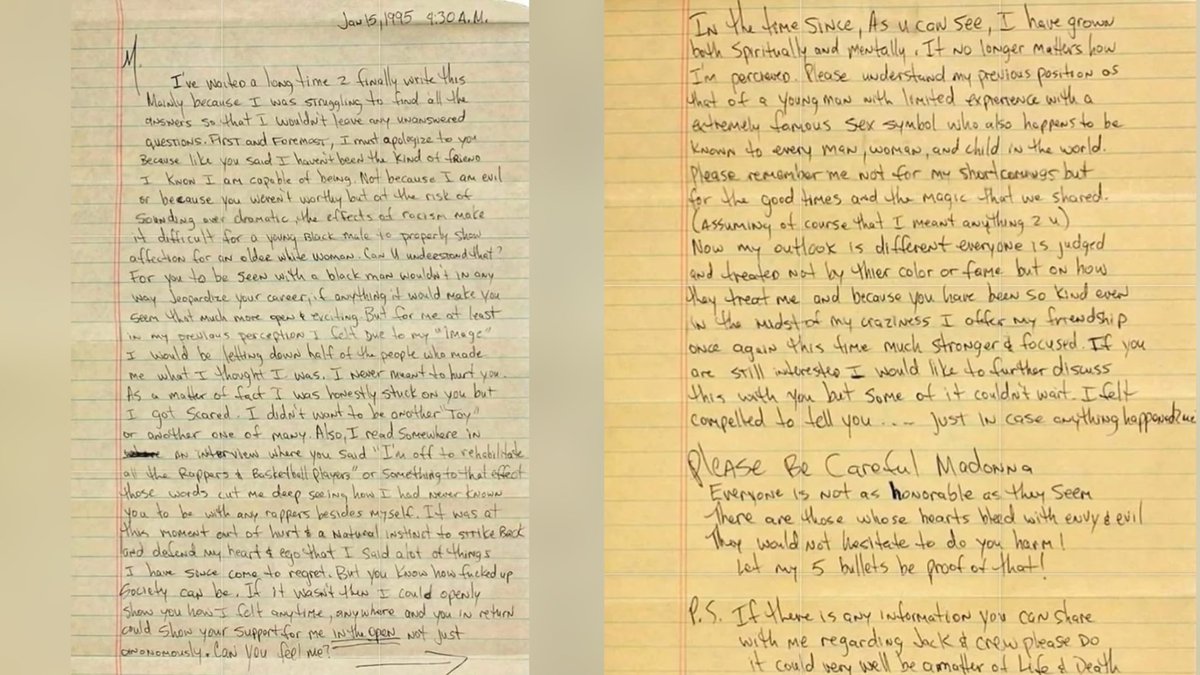 Jan 15, 1995 4:30 A.M.
M.
I've waited a long time 2 finally write this
Mainly because I was struggling to find all the
answers so that I wouldn't leave any unanswered
questions. First and Foremost, I must apologize to you
Because like you said I haven't been the kind of friend
I know I am capable of being. Not because I am evil
or because you weren't worthy but at the risk of
sounding over dramatic, the effects of racism make
it difficult for a young Black male to properly show
affection for an older white woman. Can U understand that?
For you to be seen with a black man wouldn't in any
way jeopardize your career, if anything it would make you
seem that much more open & exciting. But for me at least
in my previous perception I felt due to my "image"
I would be letting down half of the people who made
me what I thought I was. I never meant to hurt you.
As a matter of fact I was honestly stuck on you but
I got scared. I didn't want to be another "Toy"
or another one of many. Also, I read somewhere in
an interview where you said "I'm off to rehabilitate
all the Rappers & Basketball Players" or something to that effect
those words cut me deep seeing how I had never known
you to be with any rappers besides myself. It was at
this moment out of hurt & a natural instinct to strike back
and defend my heart & ego that I said alot of things
I have since come to regret. But you know how fucked up
Society can be. If it wasn't then I could openly
show you how I felt anytime, anywhere and you in return
could show your support for me in the open not just
anonomously. Can you feel me?
In the time since, As u can see, I have grown
both Spiritually and mentally. It no longer matters how
I'm percieved. Please understand my previous position as
that of a young man with limited experience with a
extremely famous sex symbol who also happens to be
known to every man, woman, and child in the world.
Please remember me not for my shortcomings but
for the good times and the magic that we shared.
(Assuming of course that I meant anything 2 u)
Now my outlook is different everyone is judged
and treated not by thier color or fame but on how
they treat me and because you have been so kind even
in the midst of my craziness I offer my friendship
once again this time much stronger & focused. If you
are still interested I would like to further discuss
this with you but some of it couldn't wait. I felt
compelled to tell you .... just in case anything happened 2 me
Please Be Careful Madonna
Everyone is not as honorable as they seem
There are those whose hearts bleed with envy & evil
They would not hesitate to do you harm!
Let my 5 bullets be proof of that!
P.S. If there is any information you can share
with me regarding Jack & crew please Do
it could very well be a matter of Life & Death